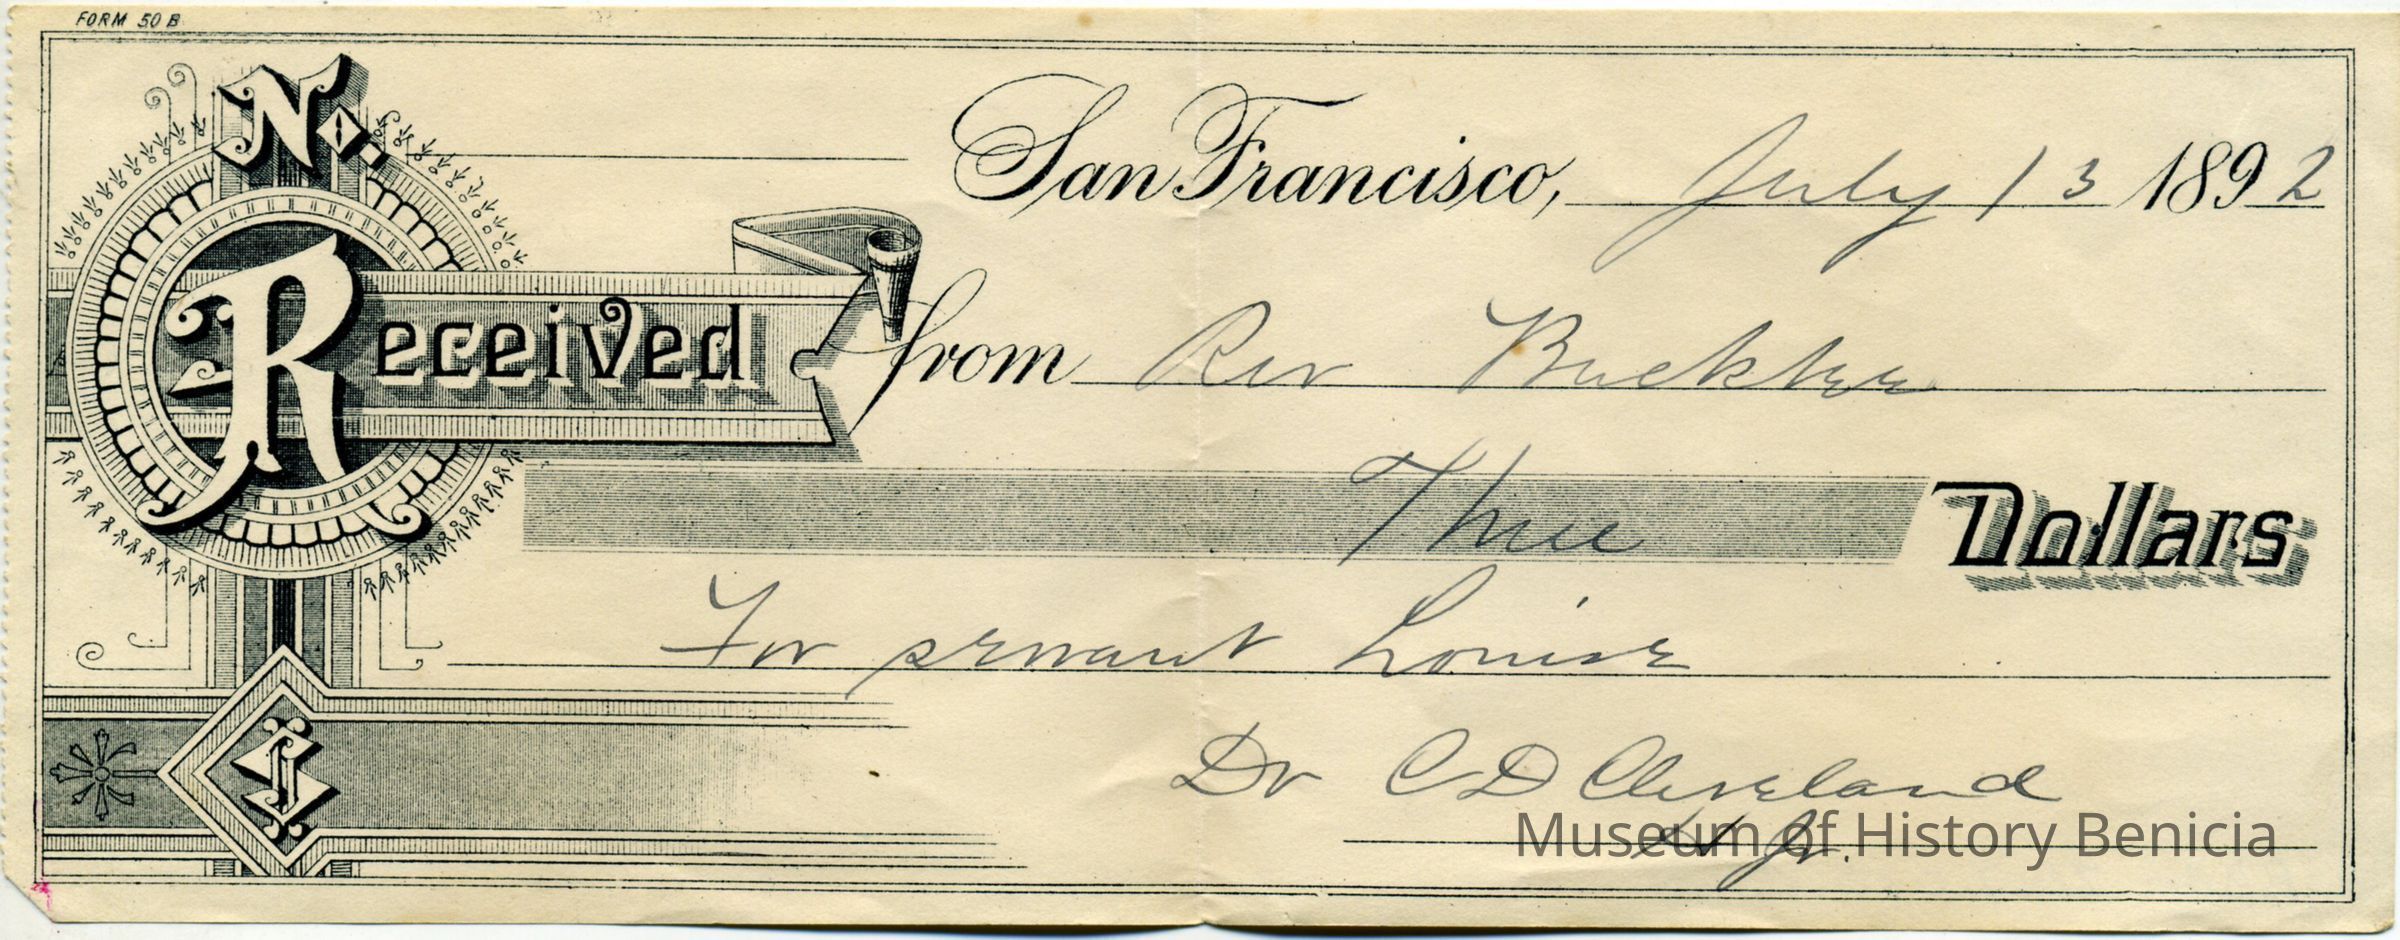 FORM 50 B
No. San Francisco, July 13 1892
Received from Rev
Three Dollars
For servant Louise
$
Dr C D Cleveland
Jr.
Museum of History Benicia